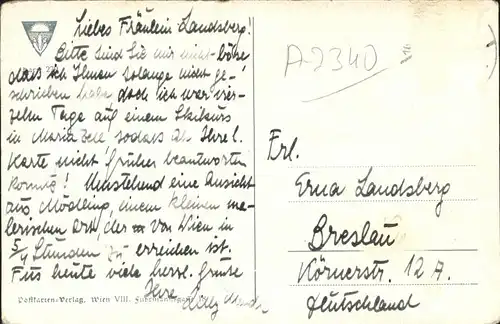 Liebes Fräulein Landsberg!
Bitte sind Sie mir nicht böse
dass ich Ihnen solange nicht ge-
schrieben habe doch ich war vier-
zehn Tage auf einem Skikurs
in Maria Zell, sodass ich Ihre l.
Karte nicht früher beantworten
konnte! Umstehend eine Ansicht
aus Mödling, einem kleinen ma-
lerischen Ort, der von Wien in
5/4 Stunden zu erreichen ist.
Für heute viele herzl. Grüsse
Ihre
Postkarten-Verlag, Wien VIII.
A-2340
Frl.
Erna Landsberg
Breslau
Körnerstr. 12 A.
Deutschland